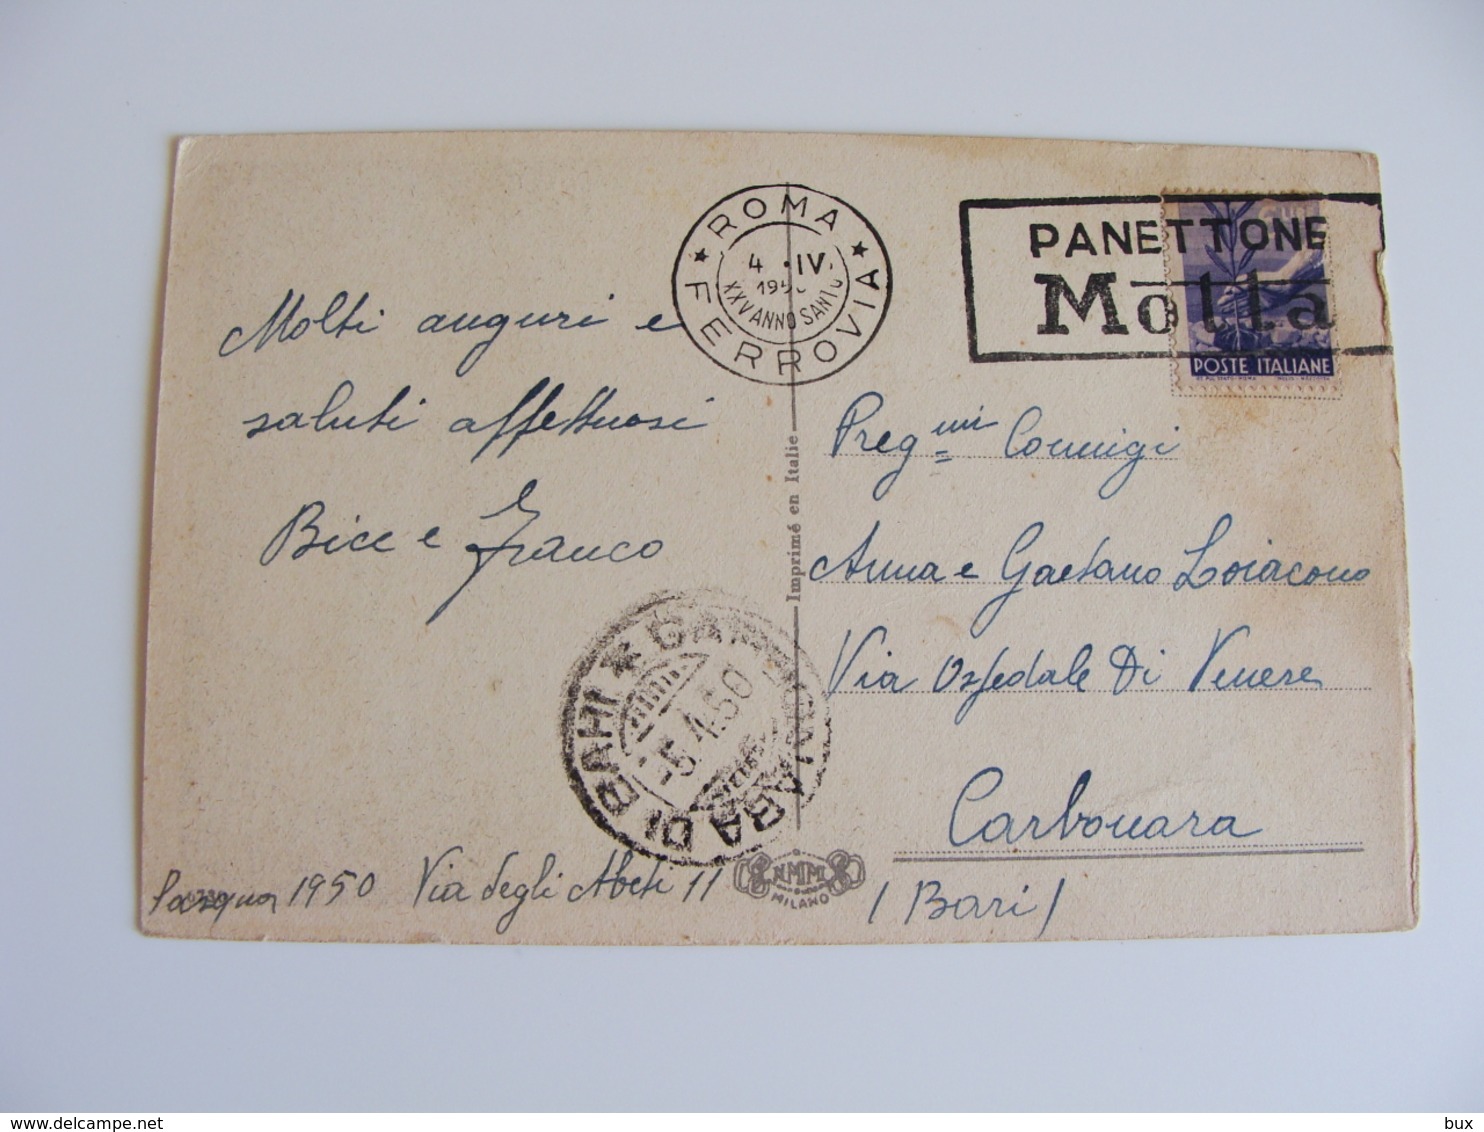 Molti auguri e
saluti affettuosi
Bice e Franco
Pasqua 1950 Via degli Abeti 11
ROMA
FERROVIA
4 . IV.
XXV ANNO SANTO
PANETTONE
Motta
POSTE ITALIANE
Imprimé en Italie
Preg.mi Coniugi
Anna e Gaetano Loiacono
Via Ospedale Di Venere
Carbonara
/ Bari /
CARBONARA DI BARI
-5.4.50
NMM
MILANO
delcampe.net
bux